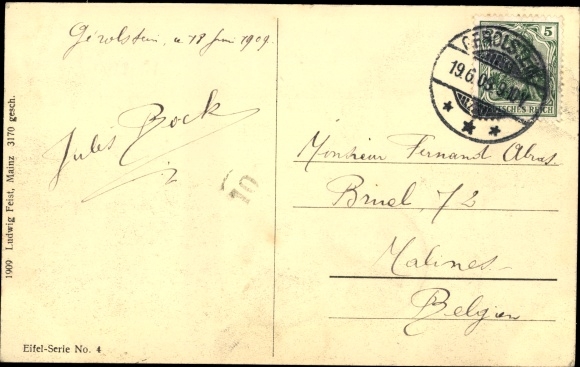 Gérolstein, u 18 Juni 1909.
Jules Bock
10
Monsieur Fernand
Bruel, 72
Malines
Belgien
5
DEUTSCHES REICH
GEROLSTEIN
19.6.09.
1909 Ludwig Feist, Mainz 3170 gesch.
Eifel-Serie No. 4